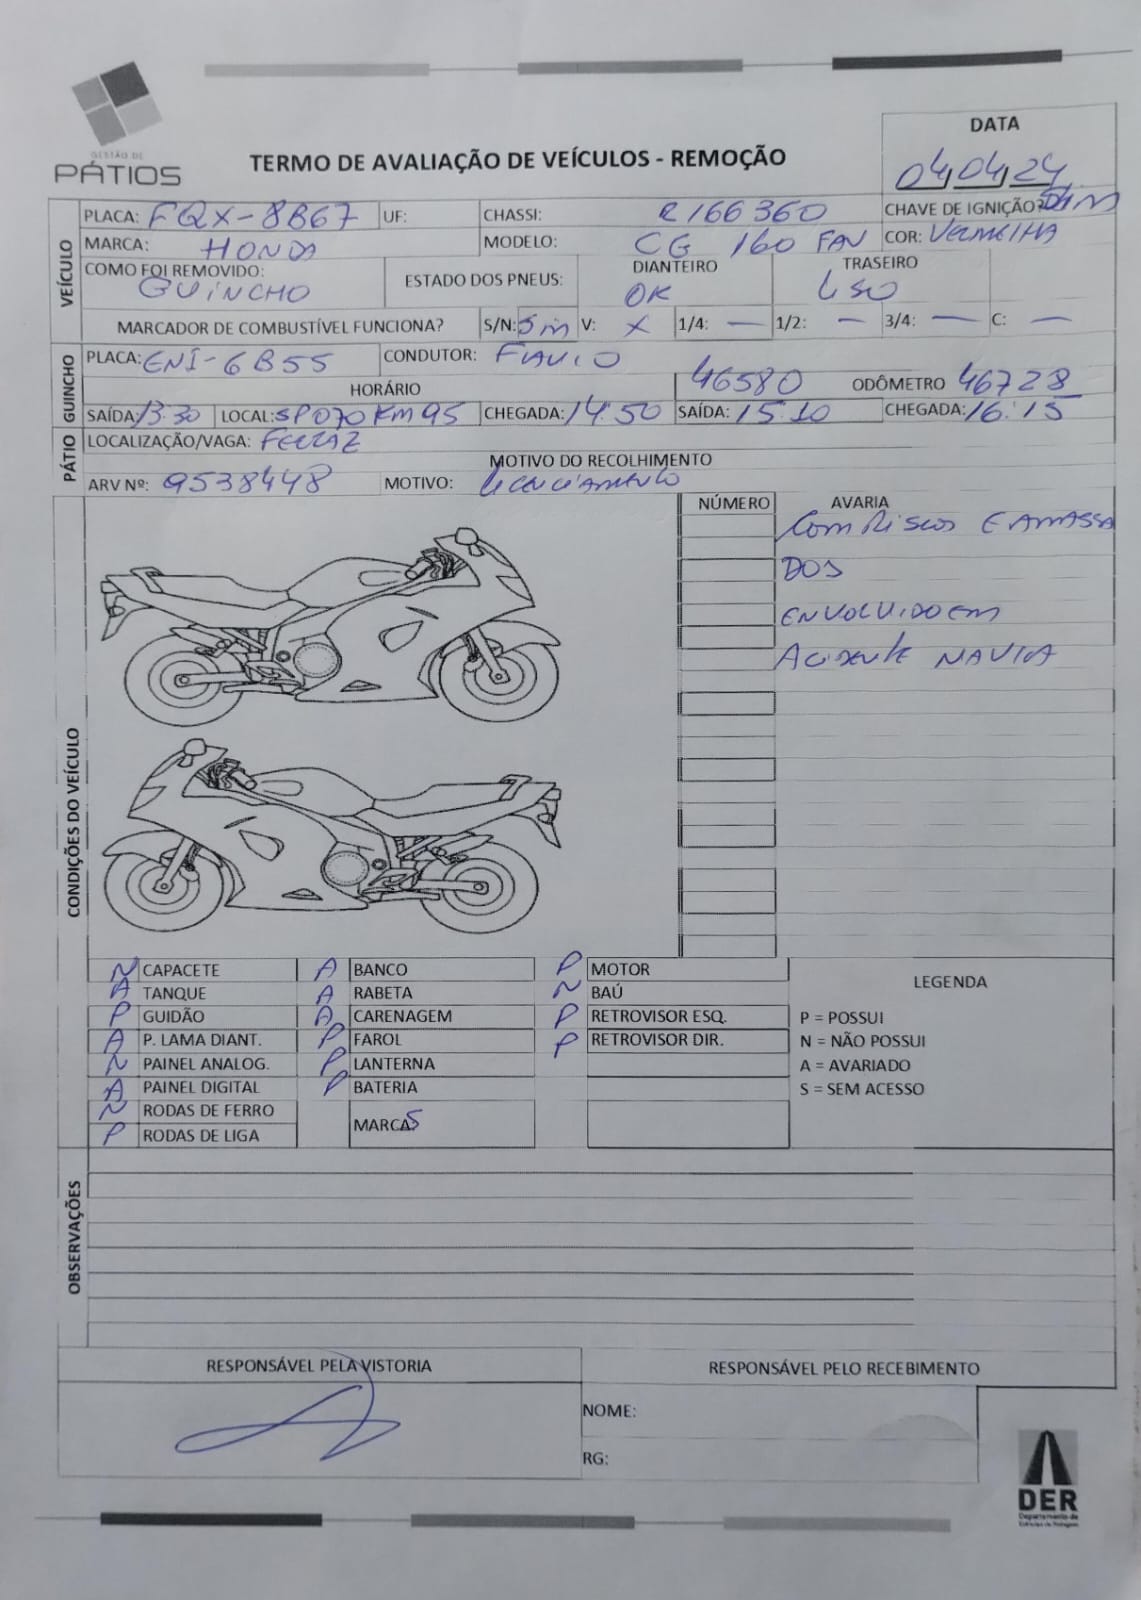 GESTÃO DE
PÁTIOS
TERMO DE AVALIAÇÃO DE VEÍCULOS - REMOÇÃO
DATA
04,04,24
PLACA: FQX-8B67 UF: CHASSI: R166360 CHAVE DE IGNIÇÃO? Sim
MARCA: HONDA MODELO: CG 160 FAN COR: VERMELHA
VEÍCULO
COMO FOI REMOVIDO: GUINCHO ESTADO DOS PNEUS: DIANTEIRO OK TRASEIRO LISO
MARCADOR DE COMBUSTÍVEL FUNCIONA? S/N: Sim V: X 1/4: — 1/2: — 3/4: — C: —
GUINCHO
PLACA: ENI-6B55 CONDUTOR: FLAVIO
HORÁRIO 46580 ODÔMETRO 46728
SAÍDA: 13:30 LOCAL: SP070 KM 95 CHEGADA: 14.50 SAÍDA: 15:10 CHEGADA: 16:15
PÁTIO
LOCALIZAÇÃO/VAGA: FERRAZ
MOTIVO DO RECOLHIMENTO
ARV Nº: 9538448 MOTIVO: Licenciamento
CONDIÇÕES DO VEÍCULO
NÚMERO AVARIA
Com Riscos E AMASSA
DOS
ENVOLVIDO em
Acidente
N CAPACETE A BANCO P MOTOR
A TANQUE A RABETA N BAÚ
P GUIDÃO A CARENAGEM P RETROVISOR ESQ.
A P. LAMA DIANT. P FAROL P RETROVISOR DIR.
N PAINEL ANALOG. P LANTERNA
A PAINEL DIGITAL P BATERIA
N RODAS DE FERRO MARCAS
P RODAS DE LIGA
LEGENDA
P = POSSUI
N = NÃO POSSUI
A = AVARIADO
S = SEM ACESSO
OBSERVAÇÕES
RESPONSÁVEL PELA VISTORIA RESPONSÁVEL PELO RECEBIMENTO
NOME:
RG:
DER
Departamento de
Estradas de Rodagem